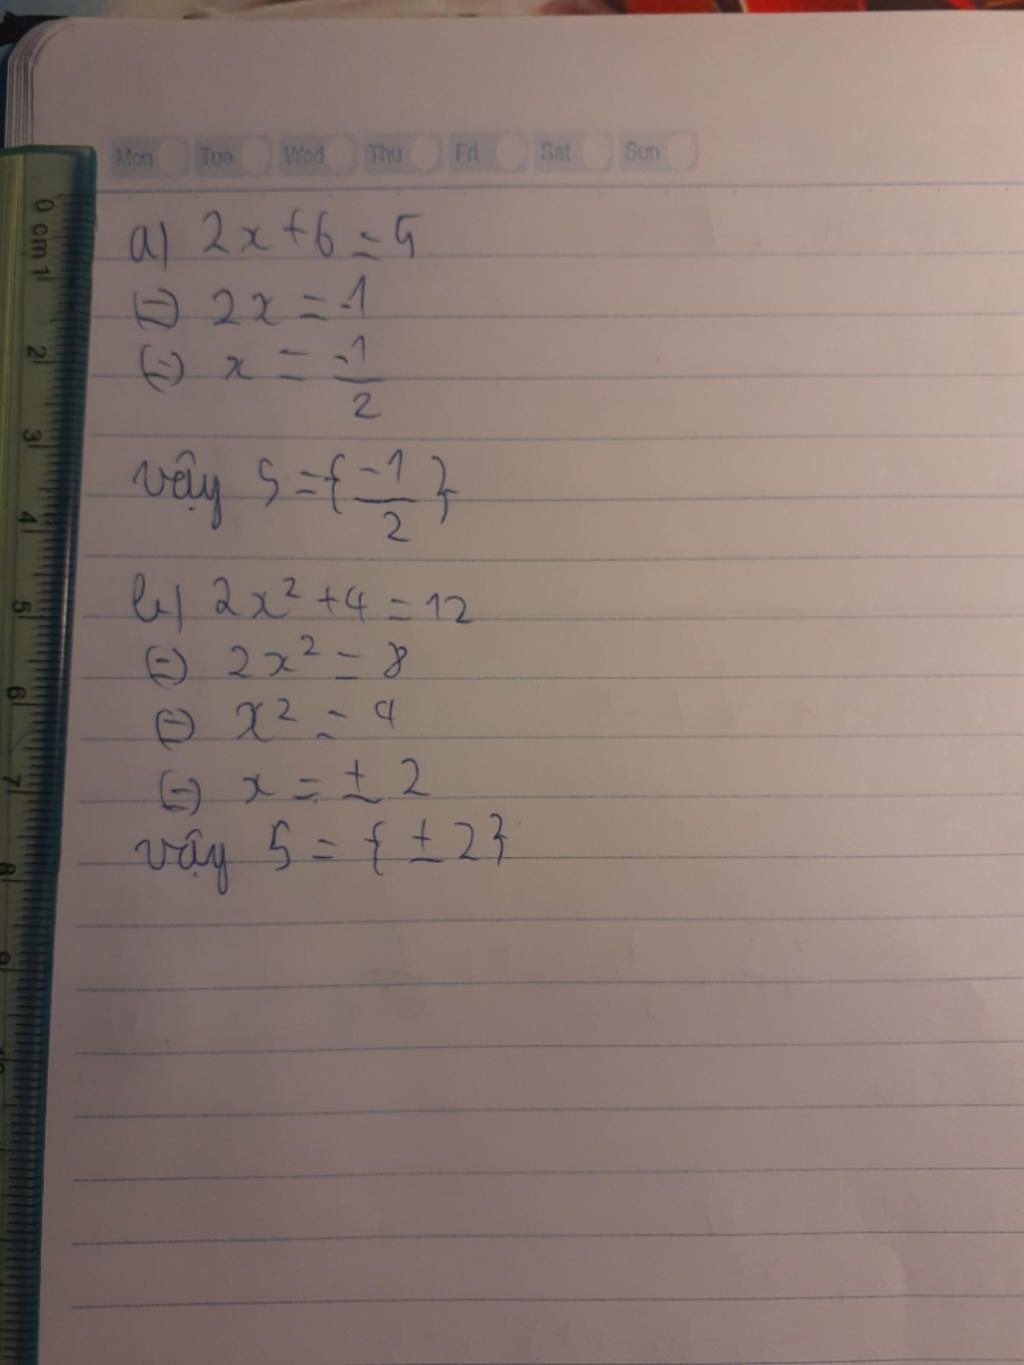 Mon Tue Wed Thu Fri Sat Sun
0 cm 1 2 3 4 5 6 7 8 9
a) 2x + 6 = 5
⇔ 2x = -1
⇔ x = -1/2
vậy S = {-1/2}
b) 2x² + 4 = 12
⇔ 2x² = 8
⇔ x² = 4
⇔ x = ± 2
vậy S = {± 2}